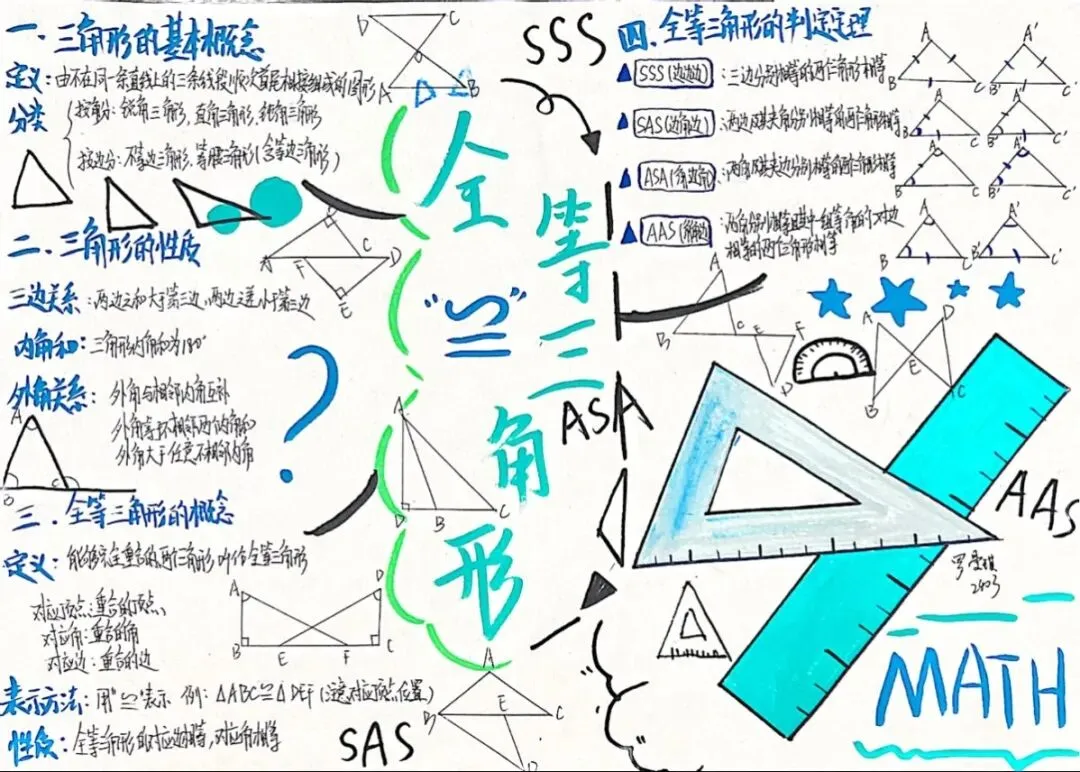 一、三角形的基本概念
定义：由不在同一条直线上的三条线段顺次首尾相接组成的图形
分类
按角分：锐角三角形，直角三角形，钝角三角形
按边分：不等边三角形，等腰三角形（含等边三角形）
二、三角形的性质
三边关系：两边之和大于第三边，两边之差小于第三边
内角和：三角形内角和为180°
外角关系：外角与相邻内角互补
外角等于不相邻两内角和
外角大于任意不相邻内角
A
B
C
三、全等三角形的概念
定义：能够完全重合的两个三角形叫作全等三角形
对应顶点：重合的顶点
对应角：重合的角
对应边：重合的边
表示方法：用"≌"表示 例：△ABC≌△DEF（注意对应顶点位置）
性质：全等三角形的对应边相等，对应角相等
D C
A B
A F C D
E
?
A
D B C
A D
B E F C
A
B E C
D
全等三角形
"≌"
SSS
ASA
SAS
AAS
四、全等三角形的判定定理
SSS（边边边）：三边分别相等的两个三角形相等
SAS（边角边）：两边及其夹角分别相等的两个三角形相等
ASA（角边角）：两角及其夹边分别相等的两个三角形相等
AAS（角角边）：两角分别相等且其中一组等角的对边
相等的两个三角形相等
A A'
B C B' C'
A A'
B C B' C'
A A'
B C B' C'
A A'
B C B' C'
A
B C E F
D
A D
E
B C
MATH